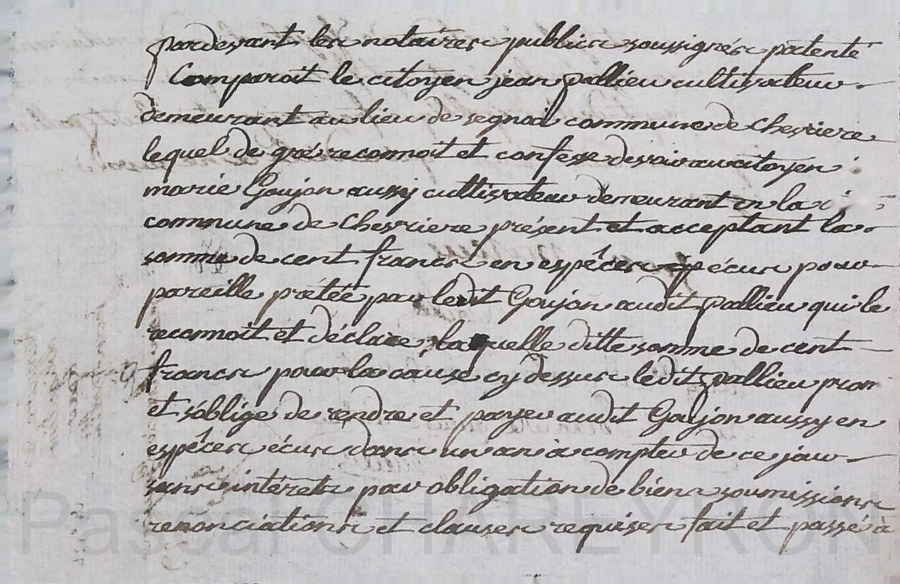 pardevant les notaires publics soussignés patenté
Comparoit le citoyen jean pallieu cultivateur
demeurant au lieu de segnoi commune de Chevriere
lequel de gré reconnoit et confesse devoir au citoyen
marie Goujon aussy cultivateur demeurant en la
commune de Chevriere présent et acceptant la
somme de cent francs en espéces écus pour
pareille prétée par ledit Goujon audit pallieu qui le
reconnoit et déclare, laquelle ditte somme de cent
francs pour la cause cy dessus ledit pallieu prom
et s'oblige de rendre et payer audit Goujon aussy en
espéces écus dans un an a compter de ce jour
sans intérets par obligation de biens soumissions
renonciations et clauses requises fait et passé a
Pascal CHAREYRON